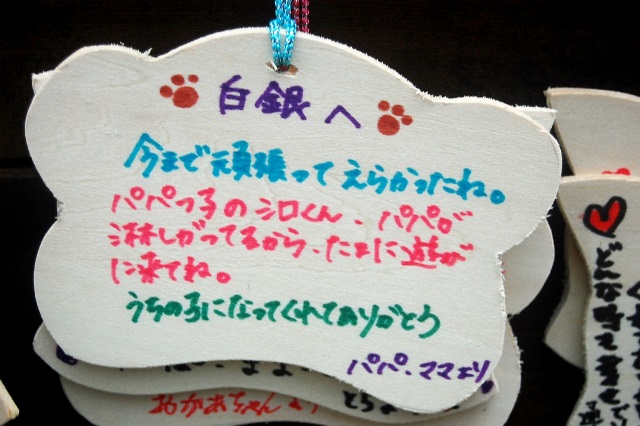 白銀へ
今まで頑張ってえらかったね。
パパっ子のシロくん、パパが
淋しがってるから、たまに遊び
に来てね。
うちの子になってくれてありがとう
パパ・ママより
おかあちゃんより
どんな時も